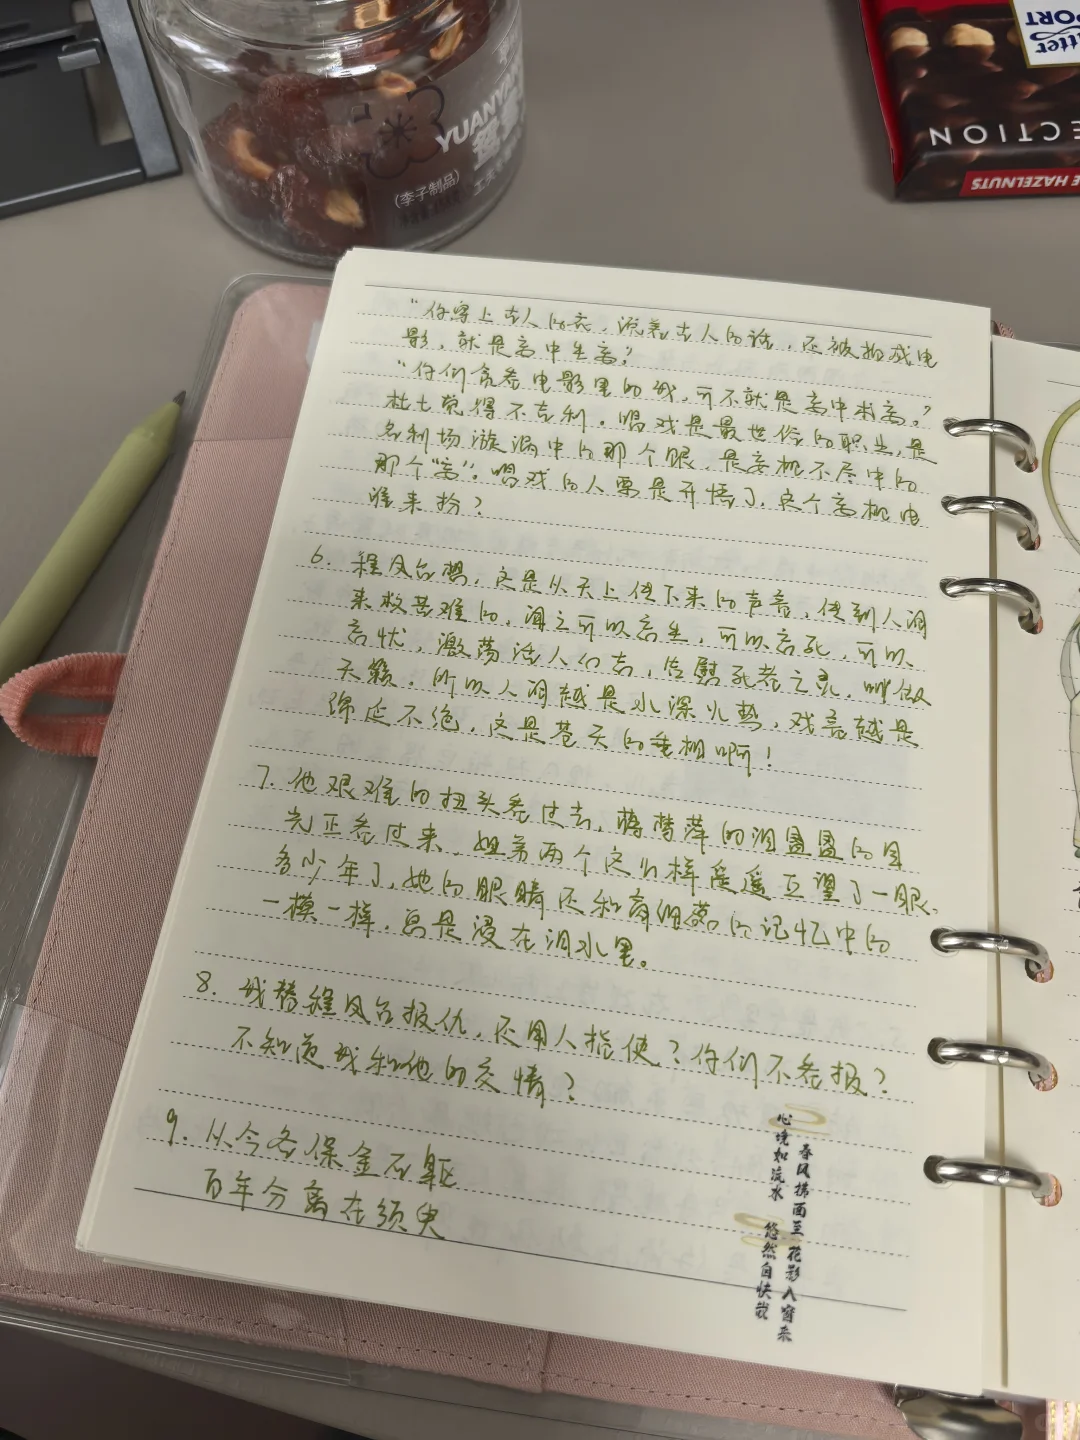 YUANYA
(李子制品)
Ritter
SPORT
ECTION
E HAZELNUTS
"你穿上古人的衣，说着古人的话，还被拍成电
影，就是高中生高？
"你们贪看电影里的我，可不就是高中求高？
杜七觉得不吉利。唱戏是最世俗的职业，是
名利场漩涡中的那个眼，是玄机不尽中的
那个"玄"。唱戏的人要是开悟了，这个玄机由
谁来扮？
6. 程凤台想，这是从天上传下来的声音，传到人间
来救苦难的，闻之可以忘生，可以忘死，可以
忘忧，激荡活人们志，告慰死者之灵，叫做
天籁。所以人间越是水深火热，戏音越是
绵延不绝，这是苍天的垂相啊！
7. 他艰难的扭头看过去，蒋梦萍的泪盈盈的目
光正看过来，姐弟两个这么样遥遥互望了一眼。
多少年了，她的眼睛还和商细蕊的记忆中的
一模一样，总是浸在泪水里。
8. 我替程凤台报仇，还用人指使？你们不看报？
不知道我和他的交情？
9. 从今各保金石躯
百年分离在须臾
春风拂面至 花影入窗来
心境如流水 悠然自快哉